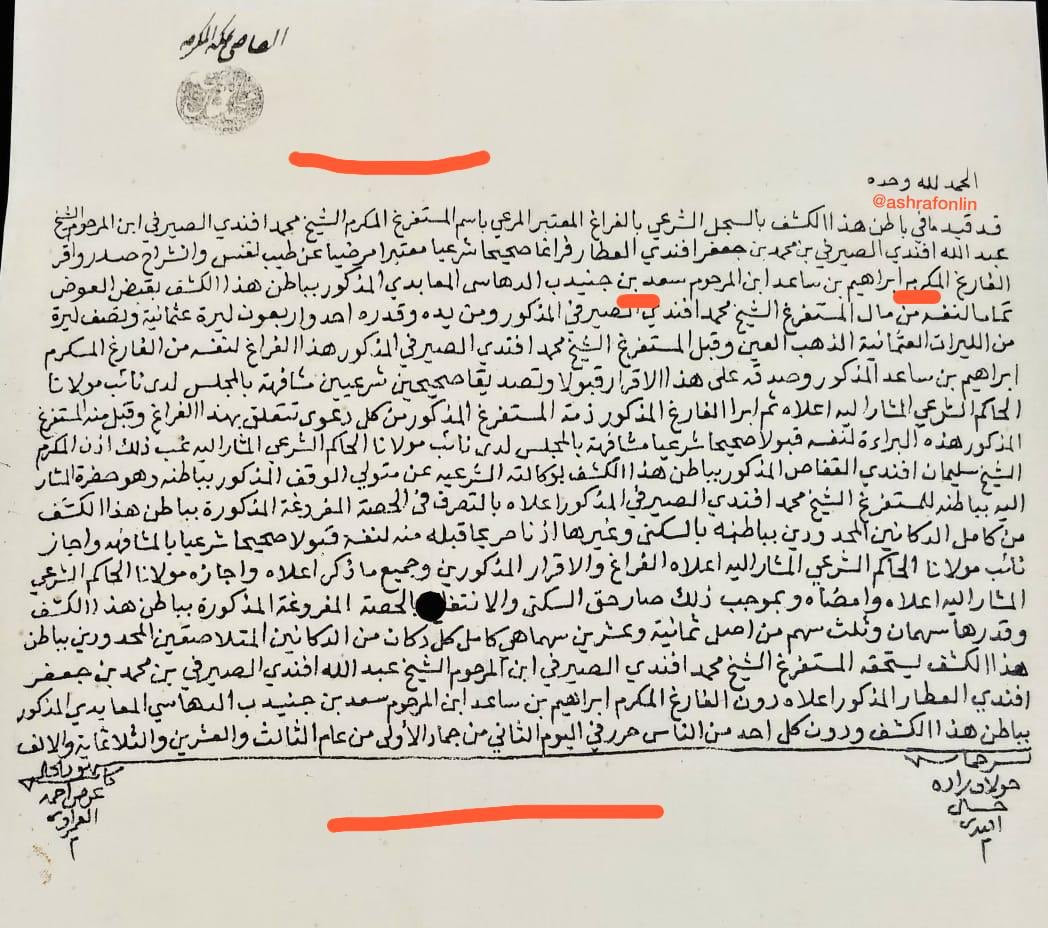 القاضي بمكة المكرمه
الحمد لله وحده
@ashrafonlin
قد قيد مافي باطن هذا الكشف بالسجل الشرعي بالفراغ المعتبر المرعي باسم المستفرغ المكرم الشيخ محمد افندي الصيرفي ابن المرحوم الشيخ
عبد الله افندي الصيرفي بن محمد بن جعفر افندي العطار فراغا صحيحا شرعيا معتبرا مرضيا عن طيب نفس وانشراح صدر واقر
الفارغ المكرم ابراهيم بن ساعد ابن المرحوم سعد بن جنيدب الدهاسي المعابدي المذكور بباطن هذا الكشف بقبض العوض
تماما لنفسه من مال المستفرغ الشيخ محمد افندي الصيرفي المذكور ومن يده وقدره احد واربعون ليرة عثمانية ونصف ليرة
من الليرات العثمانية الذهب العين وقبل المستفرغ الشيخ محمد افندي الصيرفي المذكور هذا الفراغ لنفسه من الفارغ المكرم
ابراهيم بن ساعد المذكور وصدقه على هذا الاقرار قبولا وتصديقا صحيحين شرعيين مشافهة بالمجلس لدى نائب مولانا
الحاكم الشرعي المشار اليه اعلاه ثم ابرا الفارغ المذكور ذمة المستفرغ المذكور من كل دعوى تتعلق بهذا الفراغ وقبل منه المستفرغ
المذكور هذه البراءة لنفسه قبولا صحيحا شرعيا مشافهة بالمجلس لدى نائب مولانا الحاكم الشرعي المشار اليه غب ذلك اذن المكرم
الشيخ سليمان افندي القفاص المذكور بباطن هذا الكشف بوكالته الشرعيه عن متولي الوقف المذكور بباطنه وهو حضرة المشار
اليه بباطنه للمستفرغ الشيخ محمد افندي الصيرفي المذكور اعلاه بالتصرف في الحصة المفروغة المذكورة بباطن هذا الكشف
من كامل الدكانين المحدودين بباطنه بالسكنى وغيرها اذنا صريحا قبله منه لنفسه قبولا صحيحا شرعيا بالمشافهه واجاز
نائب مولانا الحاكم الشرعي المشار اليه اعلاه الفراغ والاقرار المذكورين وجميع ما ذكر اعلاه واجازه مولانا الحاكم الشرعي
المشار اليه اعلاه وامضاه وبموجب ذلك صار حق السكنى والانتفاع بالحصة المفروغة المذكورة بباطن هذا الكشف
وقدرها سهمان وثلث سهم من اصل ثمانية وعشرين سهما هي كامل كل دكان من الدكانين المتلاصقين المحدودين بباطن
هذا الكشف يستحقه المستفرغ الشيخ محمد افندي الصيرفي ابن المرحوم الشيخ عبد الله افندي الصيرفي بن محمد بن جعفر
افندي العطار المذكور اعلاه دون الفارغ المكرم ابراهيم بن ساعد ابن المرحوم سعد بن جنيدب الدهاسي المعابدي المذكور
بباطن هذا الكشف ودون كل احد من الناس حرر في اليوم الثاني من جماد الأولى من عام الثالث والعشرين والثلاثماية والالف